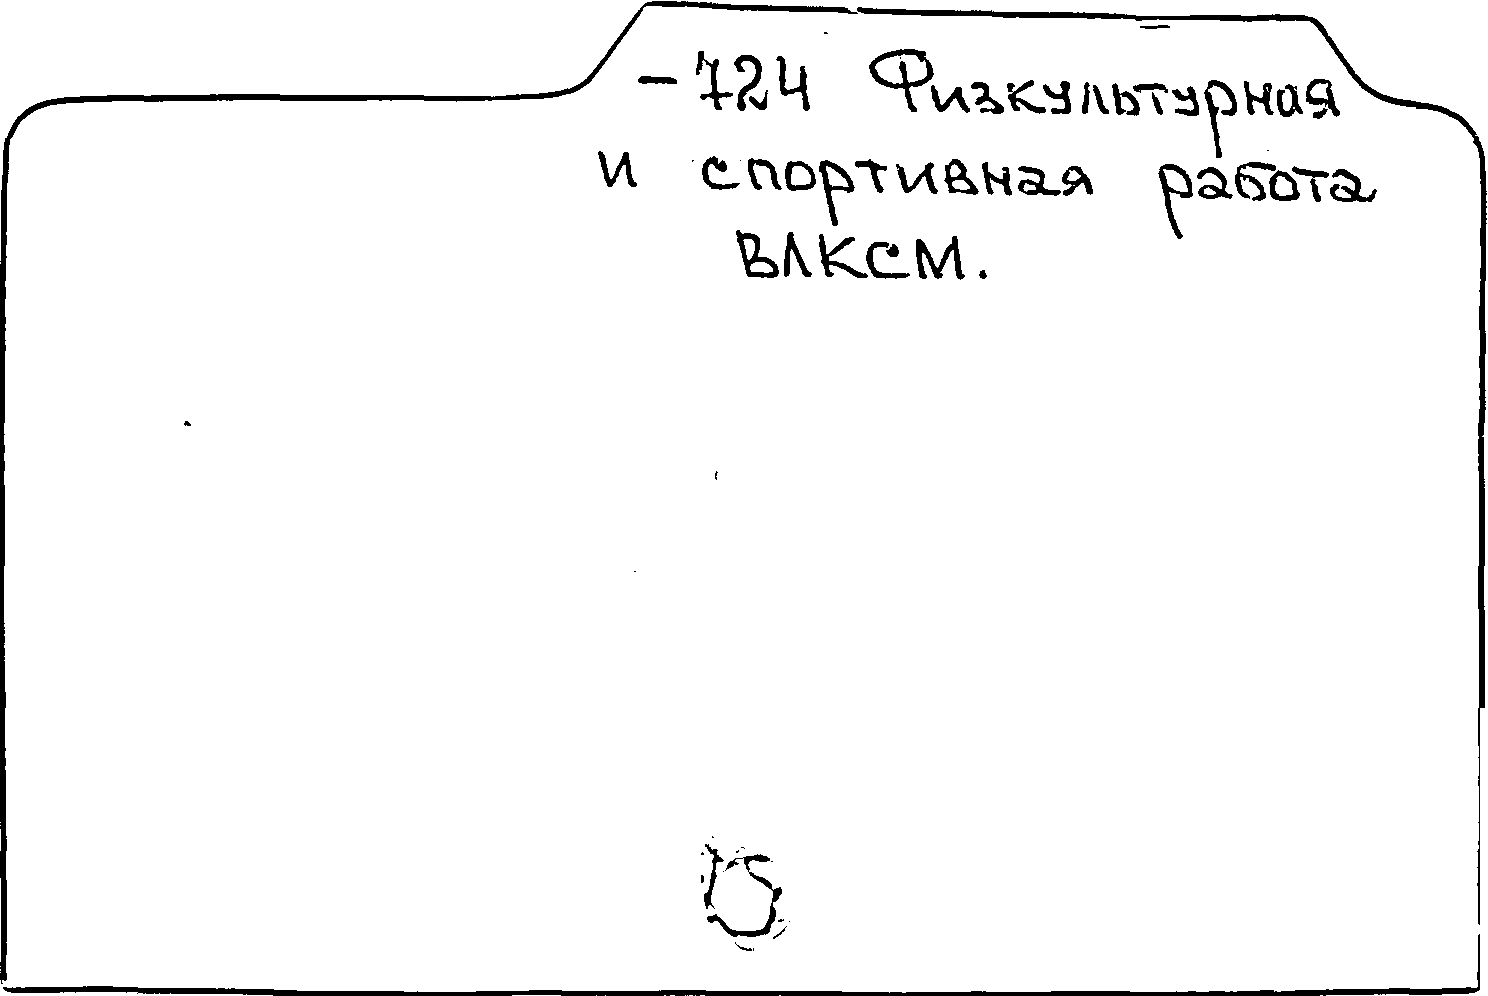 -724 Физкультурная
и спортивная работа
ВЛКСМ.